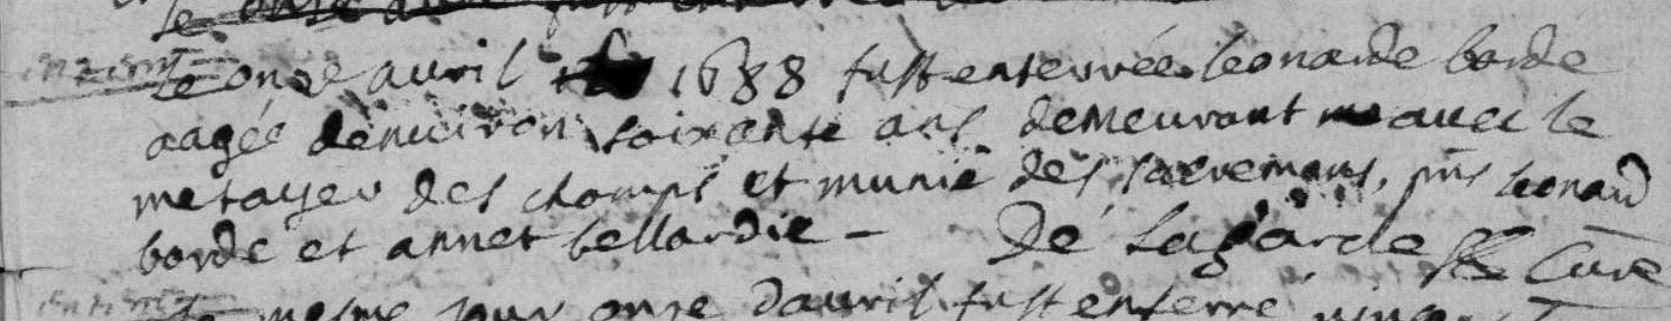 le onze avril
le onze auril 1688 fust enterrée leonarde borde
aagée denuiron soixante ans demeurant auec le
metayer des champs et munie des sacremans, pns leonard
borde et annet bellardie - De Lagarde Curé
mesme jour onze dauril fust enterré